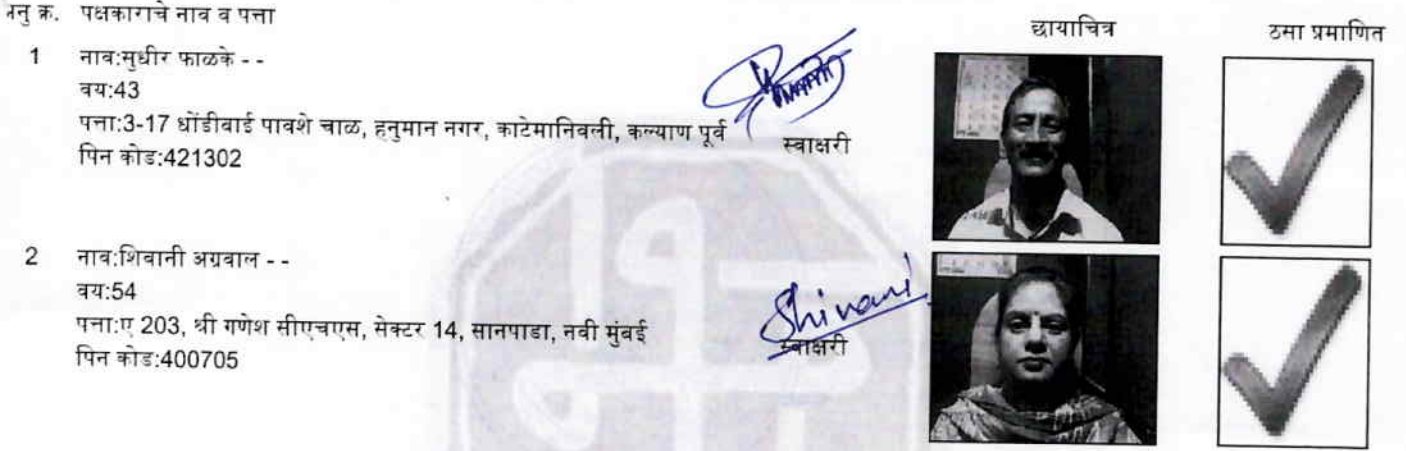 अनु क्र. पक्षकाराचे नाव व पत्ता छायाचित्र ठसा प्रमाणित
1 नाव:सुधीर फाळके - -
वय:43
पत्ता:3-17 धोंडीबाई पावशे चाळ, हनुमान नगर, काटेमानिवली, कल्याण पूर्व
पिन कोड:421302
स्वाक्षरी
2 नाव:शिवानी अग्रवाल - -
वय:54
पत्ता:ए 203, श्री गणेश सीएचएस, सेक्टर 14, सानपाडा, नवी मुंबई
पिन कोड:400705
Shivani
स्वाक्षरी